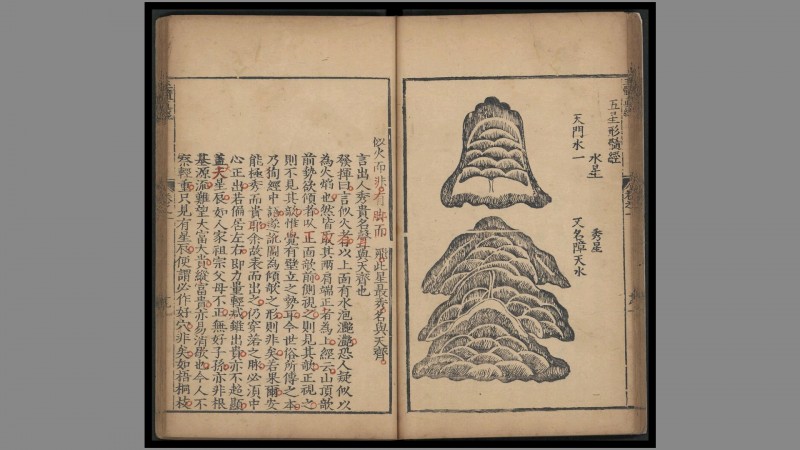 五星形髓經
水星
天門水一
秀星
又名障天水
似火而非有 而 此星最秀名與天齊
言出人秀貴名聲與天齊也
發揮曰言似火者以上面有水泡灔灔恐人疑似以
為火焰也然皆取其兩肩端正者為上經云山頂欹
前勢欲傾者以正面欹前側視之則見其欹正視之
則不見其欹惟覺有壁立之勢耳今世俗所傳之本
乃狥經中語遂訛圖為傾欹之形則非矣若果爾安
能極秀而貴耶余故表而出之仍穿落之脉必須中
心正出若偏居左右即力量輕 雖出貴亦不超顯
蓋天星辰如人家祖宗父母不正無好子孫亦非根
基源派難望大富大貴縱富貴亦易消歇也今人不
察輕重只見有星辰便謂必作好穴非矣如梧桐枝